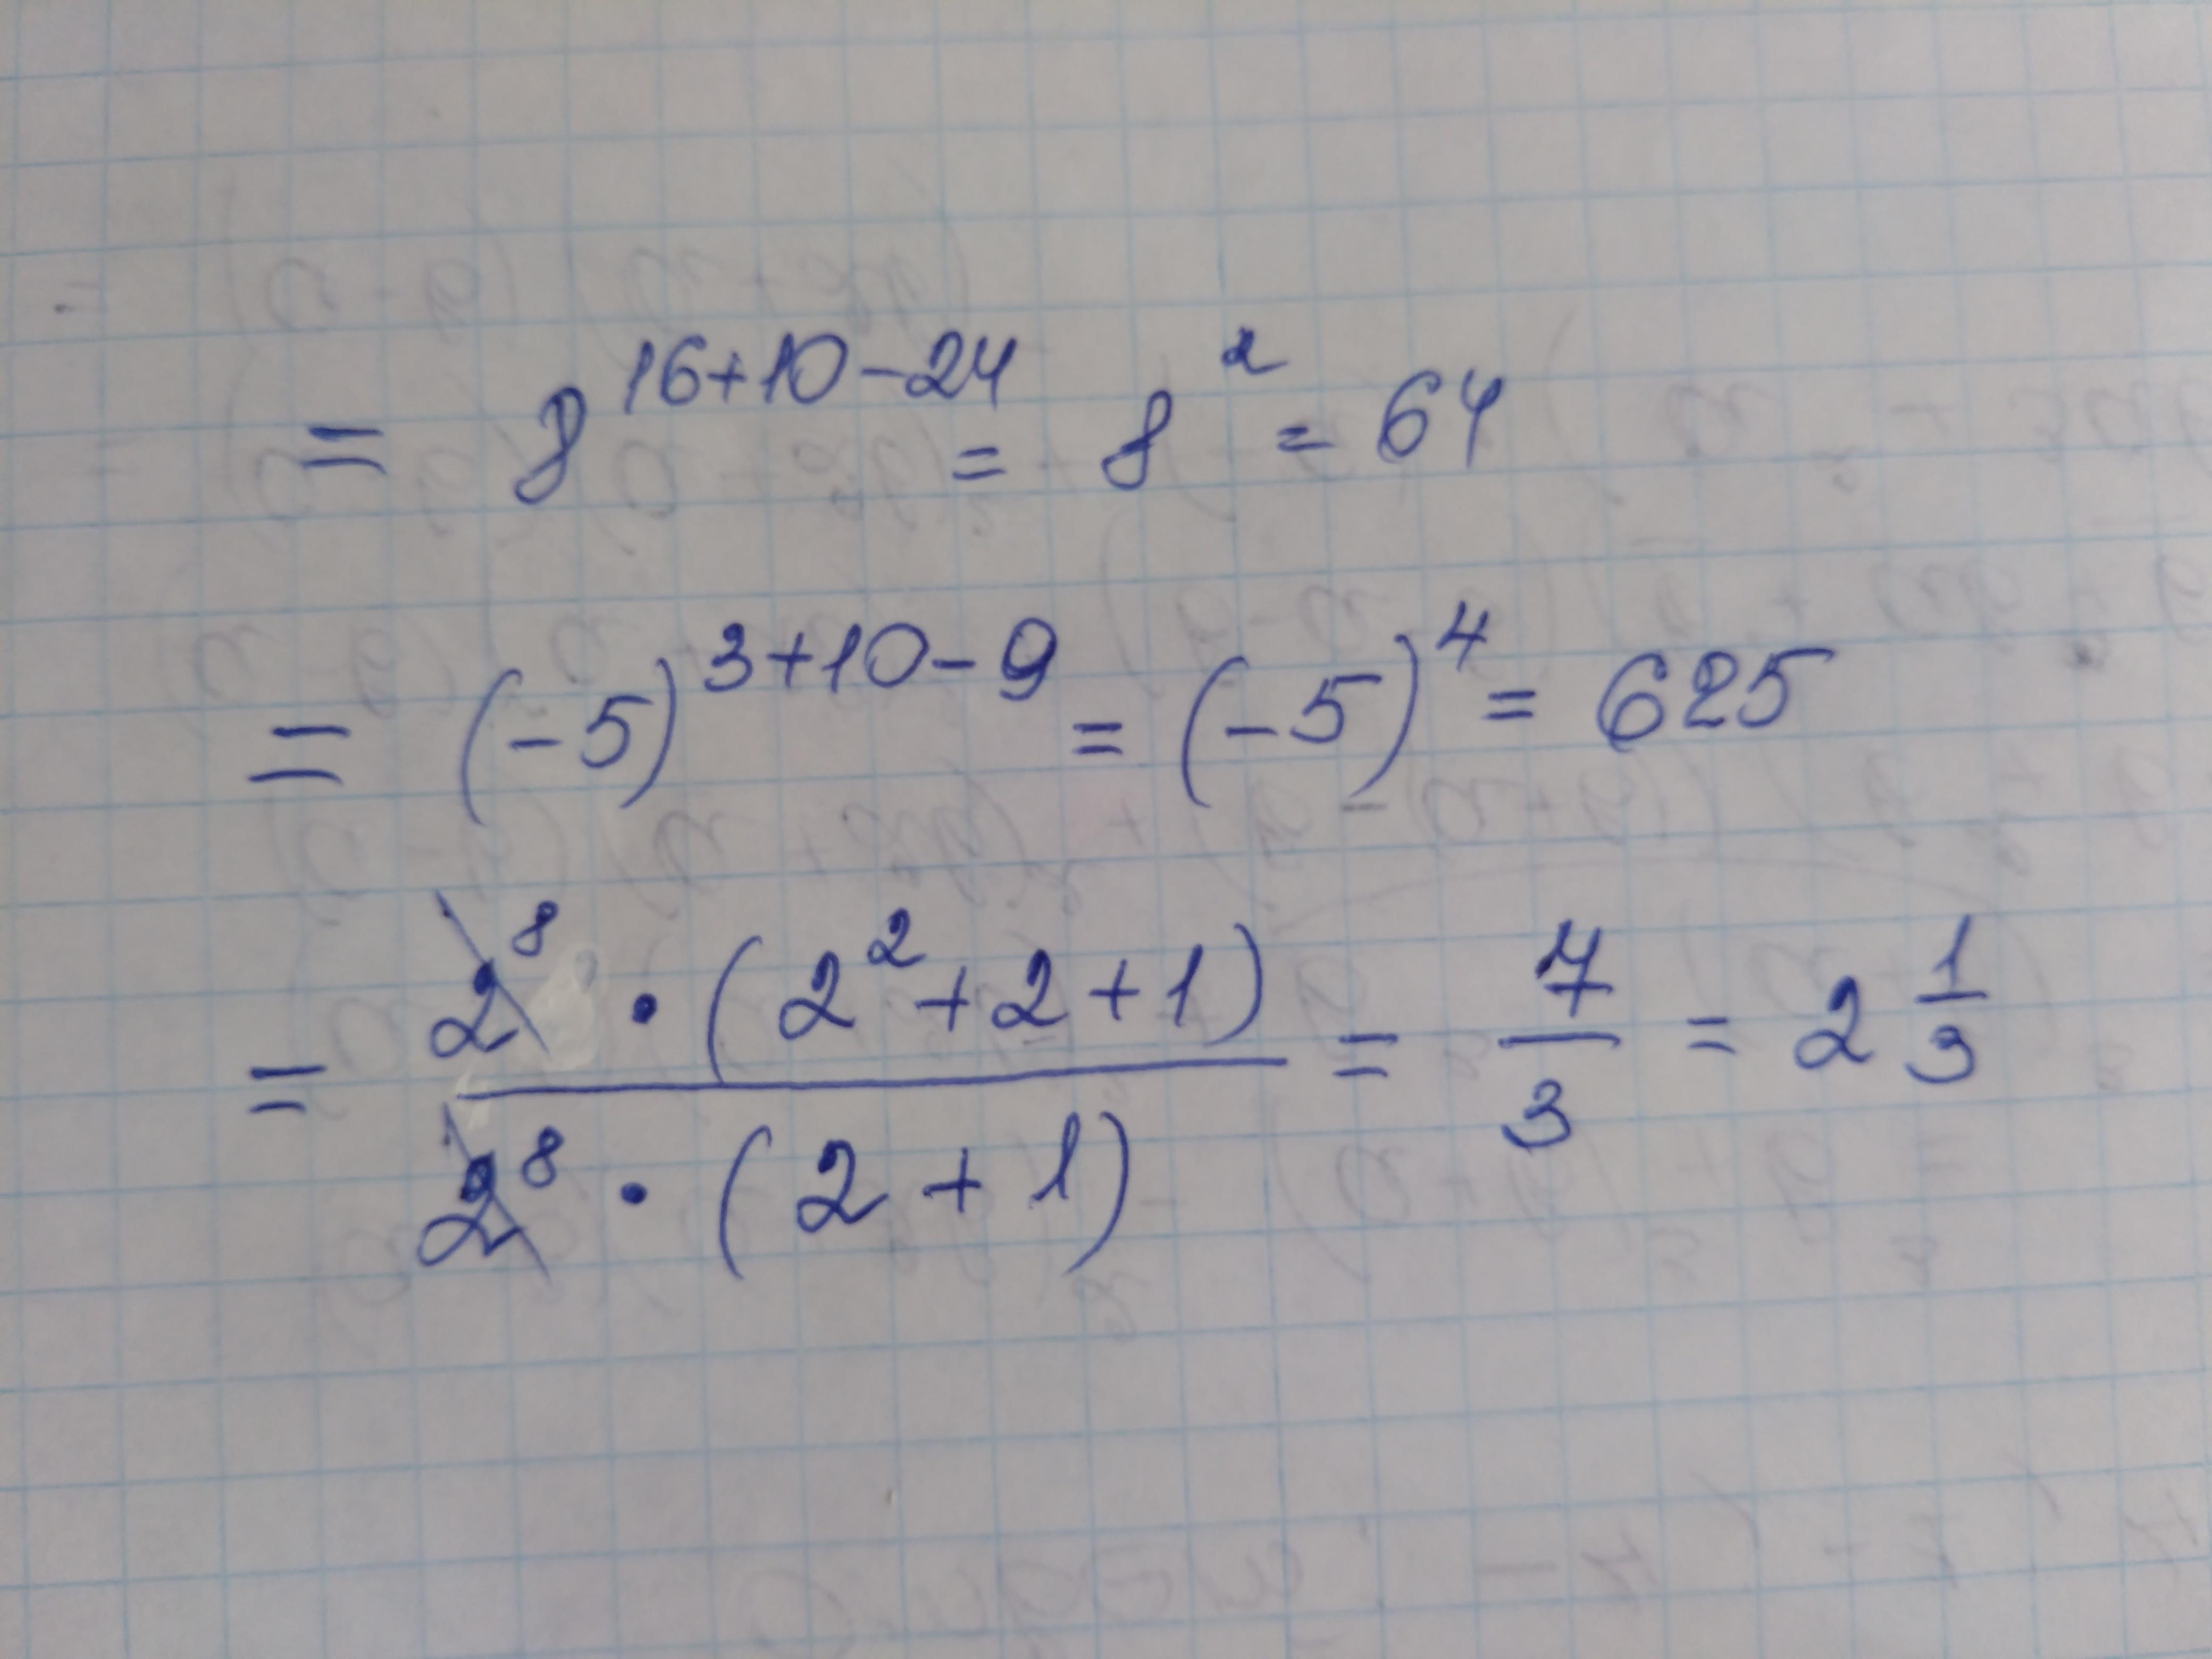 = 8^{16+10-24} = 8^2 = 64
= (-5)^{3+10-9} = (-5)^4 = 625
= \frac{2^8 \cdot (2^2+2+1)}{2^8 \cdot (2+1)} = \frac{7}{3} = 2\frac{1}{3}